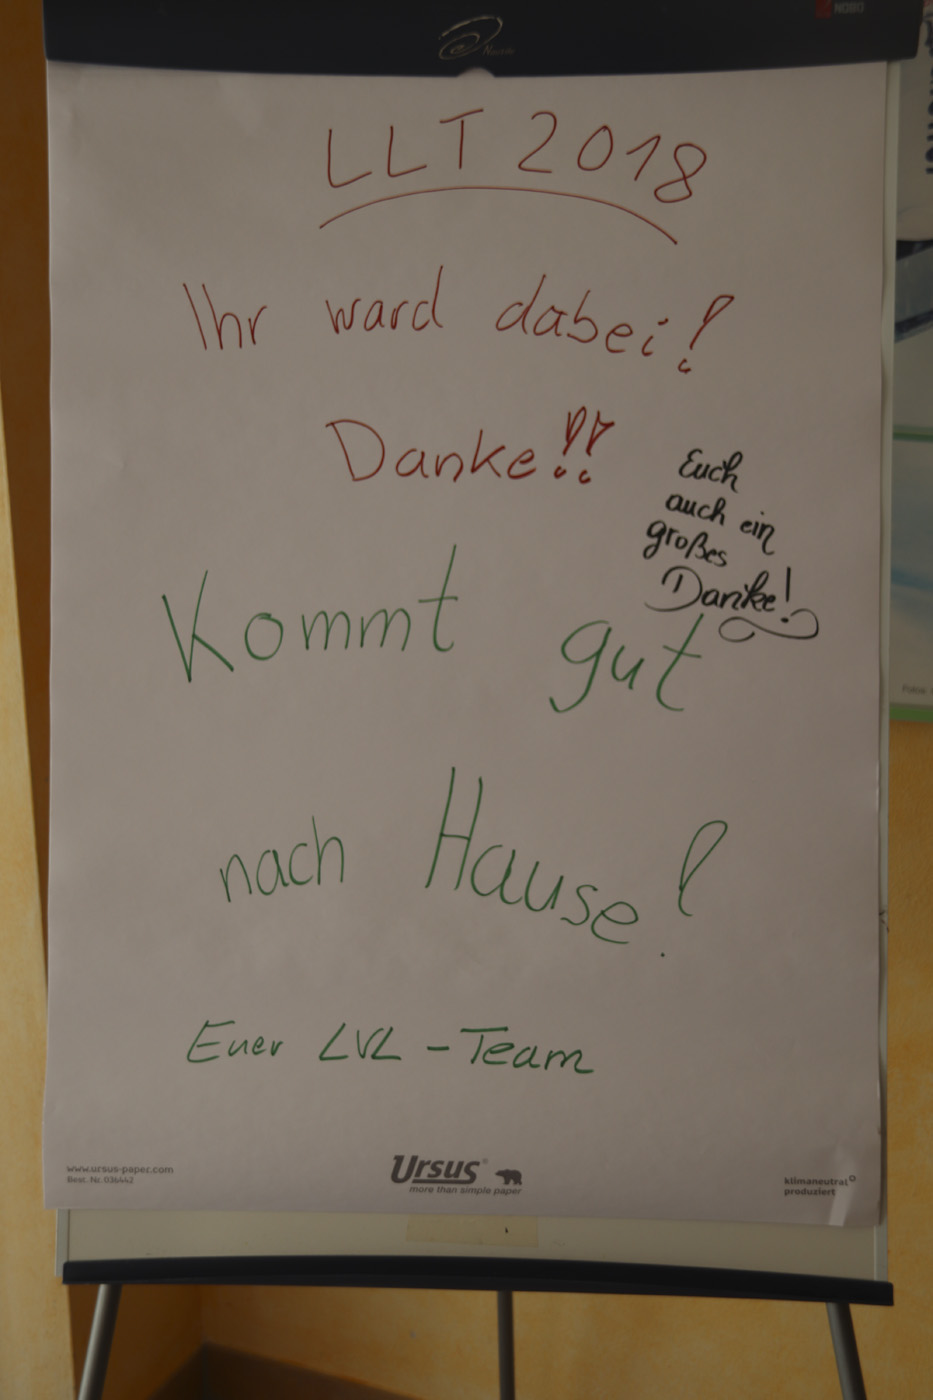 NOBO
Nobo
LLT 2018
Ihr ward dabei!
Danke!!
Euch
auch ein
großes
Danke!
Kommt gut
nach Hause!
Euer LVL-Team
www.ursus-paper.com
Best. Nr. 036442
Ursus®
more than simple paper
klimaneutral
produziert